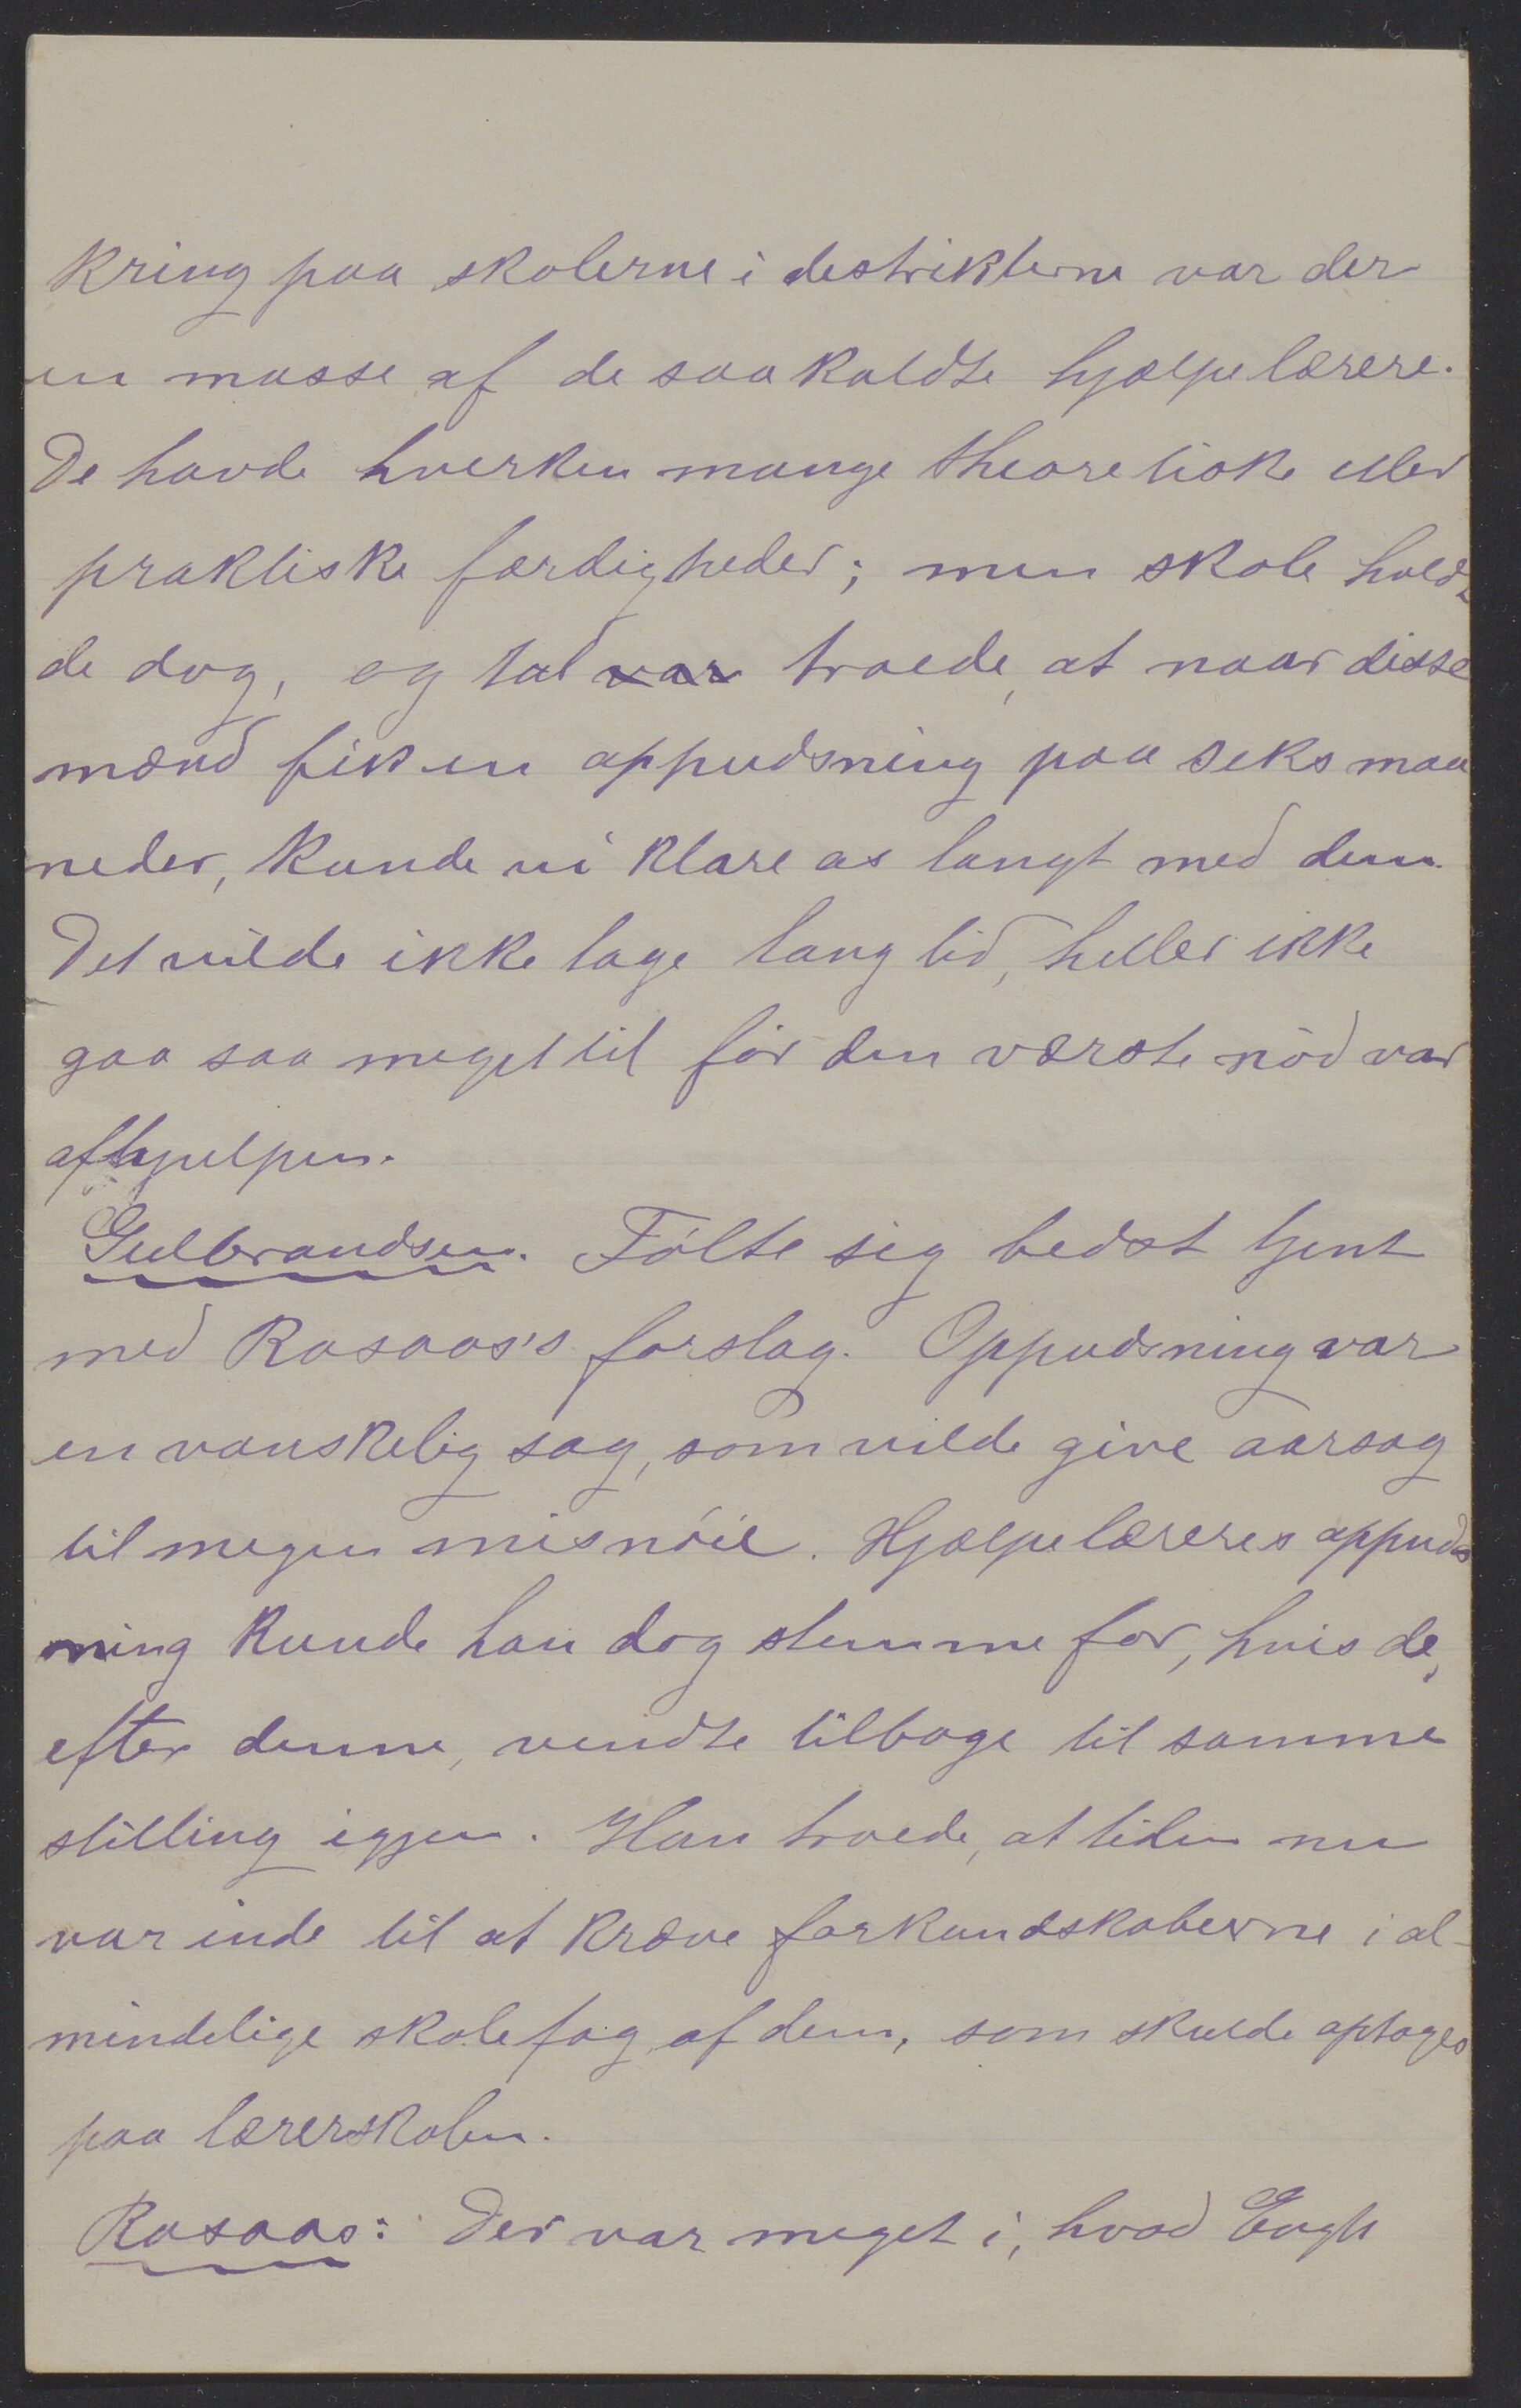 kring paa skolerne i destrikterne var der
en masse af de saakaldte hjælpelærere.
De havde hverken mange theoretiske eller
praktiske færdigheder; men skole holdt
de dog, og tal var troede, at naar disse
mænd fik en oppudsning paa seks maa
neder, kunde vi klare os langt med dem.
Det vilde ikke tage lang tid, heller ikke
gaa saa meget til för den værste nöd var
afhjulpen.
Gulbrandsen. Fölte sig bedst tjent
med Rosaas's forslag. Oppudsning var
en vanskelig sag, som vilde give aarsag
til megen misnöie. Hjælpelæreres oppuds
ning kunde han dog stemme for, hvis de,
efter denne, vendte tilbage til samme
stilling igjen. Han troede, at tiden nu
var inde til at kræve forkundskaberne i al-
mindelige skolefag af dem, som skulde optages
paa lærerskolen.
Rosaas: Der var meget i, hvad Engh